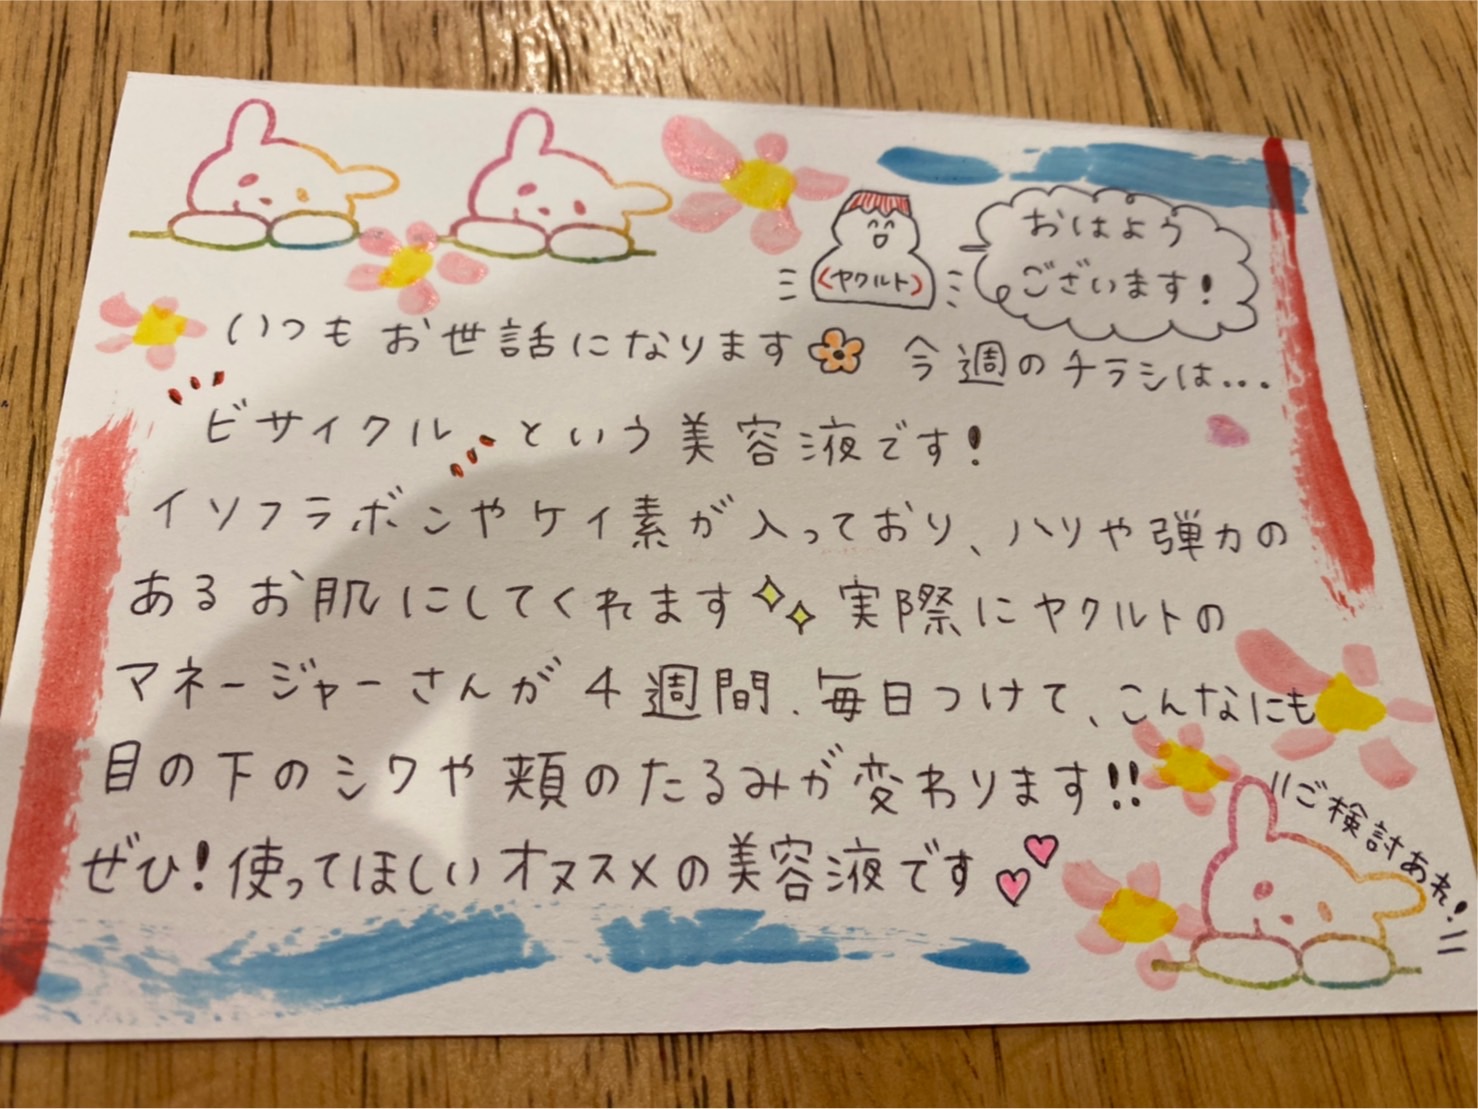 おはよう
ございます!
ヤクルト
いつもお世話になります 今週のチラシは...
ビサイクルという美容液です!
イソフラボンやケイ素が入っており、ハリや弾力の
あるお肌にしてくれます 実際にヤクルトの
マネージャーさんが4週間、毎日つけて、こんなにも
目の下のシワや頬のたるみが変わります!!
ぜひ!使ってほしいオススメの美容液です
ご検討あれ!